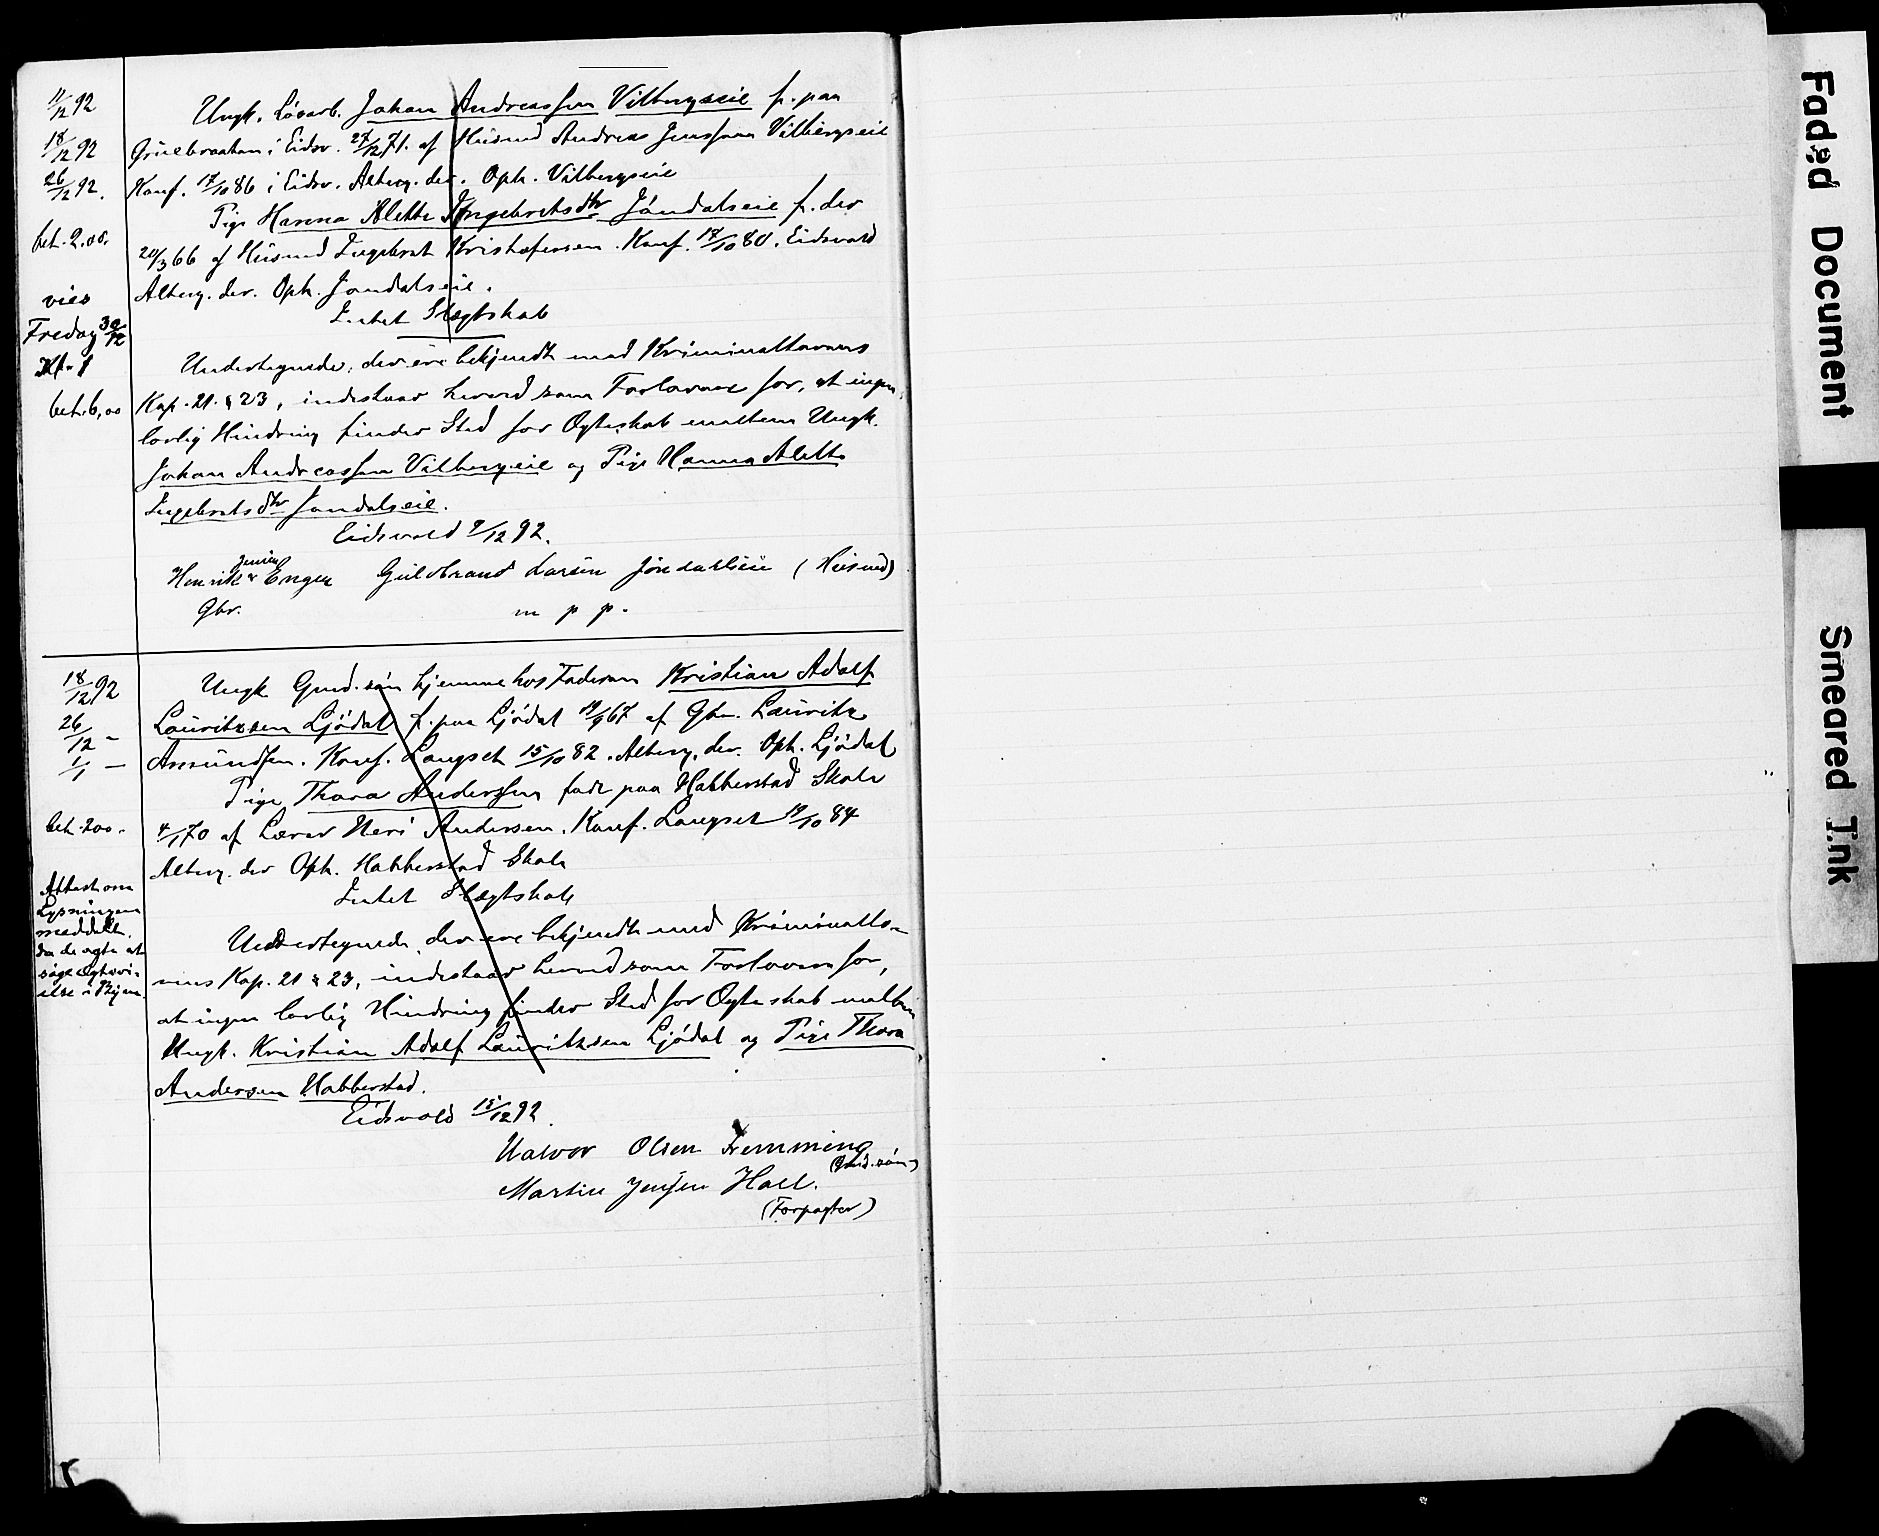 11/12 92
18/12 92
26/12 92.
bet. 2.00.
vies
Fredag 30/12
Kl. 1
bet. 6,00
Ungk. Løsarb. Johan Andreassen Vilbergseie f. paa
i Eidsv. 27/12 71. af Husmd Andreas Jenssen Vilbergseie
Konf. 17/10 86 i Eidsv. Altberg. der. Oph. Vilbergseie
Pige Hanna Alette Ingebretsdtr Jøndalseie f. der
20/3 66 af Husmd Ingebret Kristofersen. Konf. 17/10 80. Eidsvold
Altberg. der. Oph. Jøndalseie.
Intet Slægtskab
Undertegnede, der ere bekjendte med Kriminallovens
Kap. 21 § 23, indestaar herved som Forlovere for, at ingen
lovlig Hindring finder Sted for Ægteskab mellem Ungk.
Johan Andreassen Vilbergseie og Pige Hanna Alette
Ingebretsdtr Jøndalseie.
Eidsvold 9/12 92.
Henrik Jensen Engen Guldbrand Larsen Jøndalseie (Husmd)
Gbr. m p p.
18/12 92
26/12 -
1/1 -
bet. 200.
Attest om
Lysningen
meddelt,
da de agte at
søge Ægtevi-
else i Byen.
Ungk Gmd. søn hjemme hos Faderen Kristian Adolf
Lauritzsen Ljødal f. paa Ljødal 19/9 67 af Gbr. Lauritz
Amundsen. Konf. Langset 15/10 82. Altberg. der. Oph. Ljødal
Pige Thora Andersen født paa Habberstad Skole
4/1 70 af Lærer Andersen. Konf. Langset 19/10 84
Altberg. der Oph. Habberstad Skole
Intet Slægtskab
Undertegnede, der ere bekjendte med Kriminallo-
vens Kap. 21 § 23, indestaar herved som Forlovere for,
at ingen lovlig Hindring finder Sted for Ægteskab mellem
Ungk. Kristian Adolf Lauritzsen Ljødal og Pige Thora
Andersen Habberstad.
Eidsvold 15/12 92.
Halvor Olsen Femming
(Gmd. søn)
Martin Jensen Hall.
(Forpagter)
Faded Document
Smeared Ink